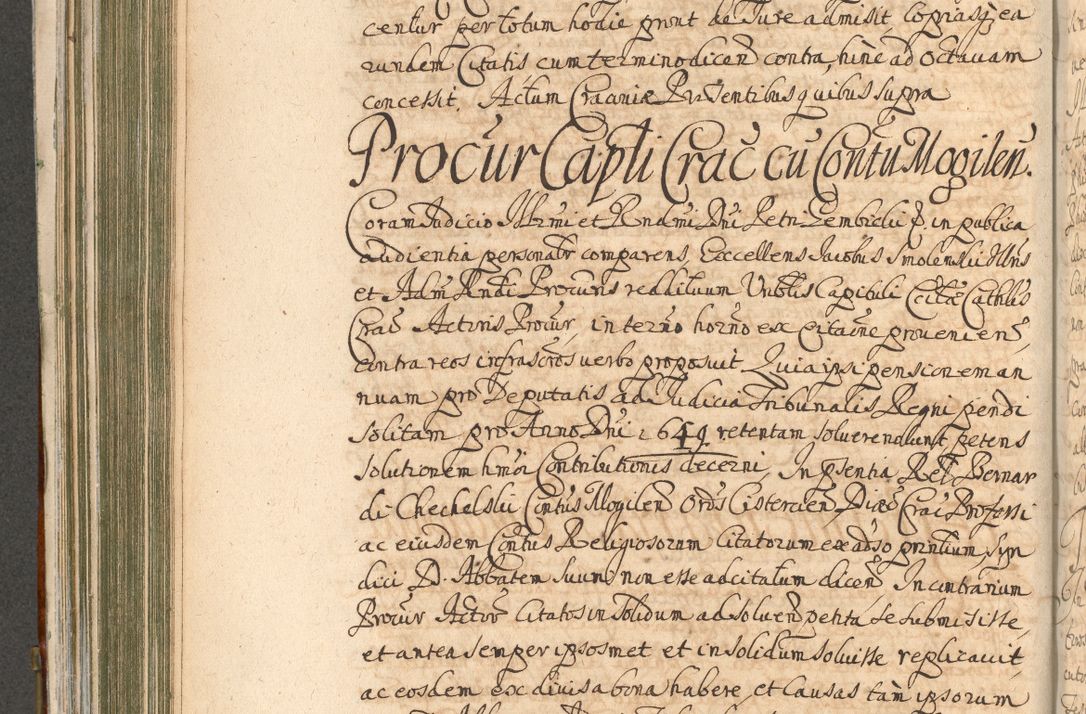 centur per totum hodie pront de Jure admisit, copiasq ea
rundem Citatis cum termino dicen contra, hinc ad octavam
concessit. Actum Cracoviæ Præsentibus quibus supra
Procur Capli Crac cu Contu Mogilen.
Coram Judicio Illrmi et Rndmi Dni Petri Gembicki in publica
audientia personalr comparens, Excellens Jacobus Smolenski Illris
et Adm Rndi Procuris reddituum Vnblis Capituli Ecclæ Cathlis
Crac Actoris Procur, in terno horno ex citacne provenien,
contra reos infrascros verbo proposuit. Quia ipsi pensionem an
nuam pro Deputatis ad Judicia Tribunalis Regni pendi
solitam pro Anno Dni 1649 retentam soluere nolunt petens
solutionem hmoi Contributionis decerni, In psentia Rel Bernar
di Chechelski Contus Mogilen Ordis Cistercien Diæc Crac Professi
ac eiusdem Contus Religiosorum Citatorum ex adso printium, syn
dici D. Abbatem suum non esse ad citatum dicen In contrarium
Procur Actor Citatos in solidum ad soluen petita se submisisse,
et antea semper ipsosmet et in solidum soluisse replicauit
ac eosdem ex divisa bona habere, et Causas tam ipsorum